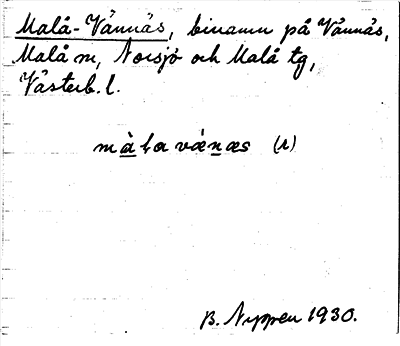 Malå-Vännäs, binamn på Vännäs,
Malå m, Norsjö och Malå tg,
Västerb. l.
màla vǽnæs (1)
B. Nyppen 1930.